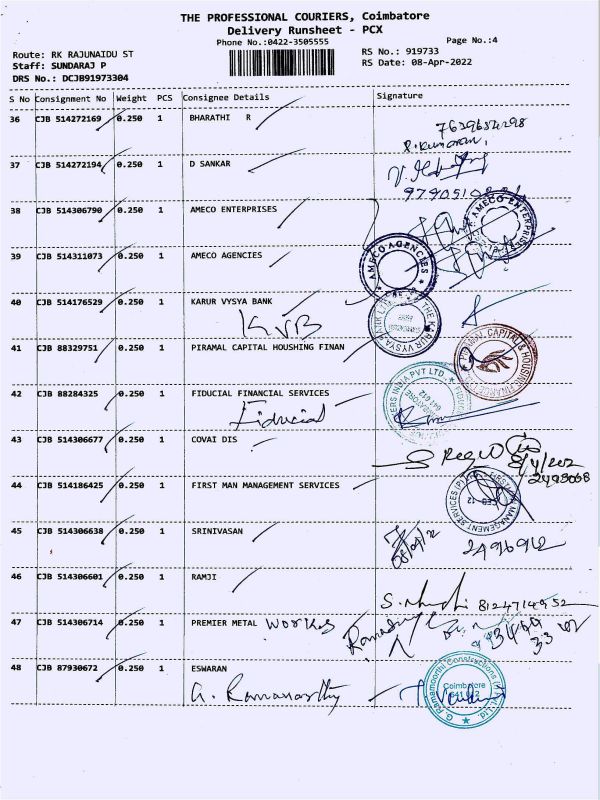 THE PROFESSIONAL COURIERS, Coimbatore
Delivery Runsheet - PCX
Phone No.:0422-3505555
Page No.:4
Route: RK RAJUNAIDU ST
RS No.: 919733
Staff: SUNDARAJ P
RS Date: 08-Apr-2022
DRS No.: DCJB91973304
S No Consignment No Weight PCS Consignee Details Signature
36 CJB 514272169 0.250 1 BHARATHI R
7639684298
37 CJB 514272194 0.250 1 D SANKAR
38 CJB 514306790 0.250 1 AMECO ENTERPRISES
AMECO ENTERPRISES
39 CJB 514311073 0.250 1 AMECO AGENCIES
AMECO AGENCIES
40 CJB 514176529 0.250 1 KARUR VYSYA BANK
KVB
41 CJB 88329751 0.250 1 PIRAMAL CAPITAL HOUSHING FINAN
42 CJB 88284325 0.250 1 FIDUCIAL FINANCIAL SERVICES
Fiducial
43 CJB 514306677 0.250 1 COVAI DIS
44 CJB 514186425 0.250 1 FIRST MAN MANAGEMENT SERVICES
45 CJB 514306638 0.250 1 SRINIVASAN
2496962
46 CJB 514306601 0.250 1 RAMJI
8124714952
47 CJB 514306714 0.250 1 PREMIER METAL Workes
48 CJB 87930672 0.250 1 ESWARAN
G. Ramamoorthy
G. Ramamoorthi Constructions (I) Pvt. Ltd.
Coimbatore
641 012